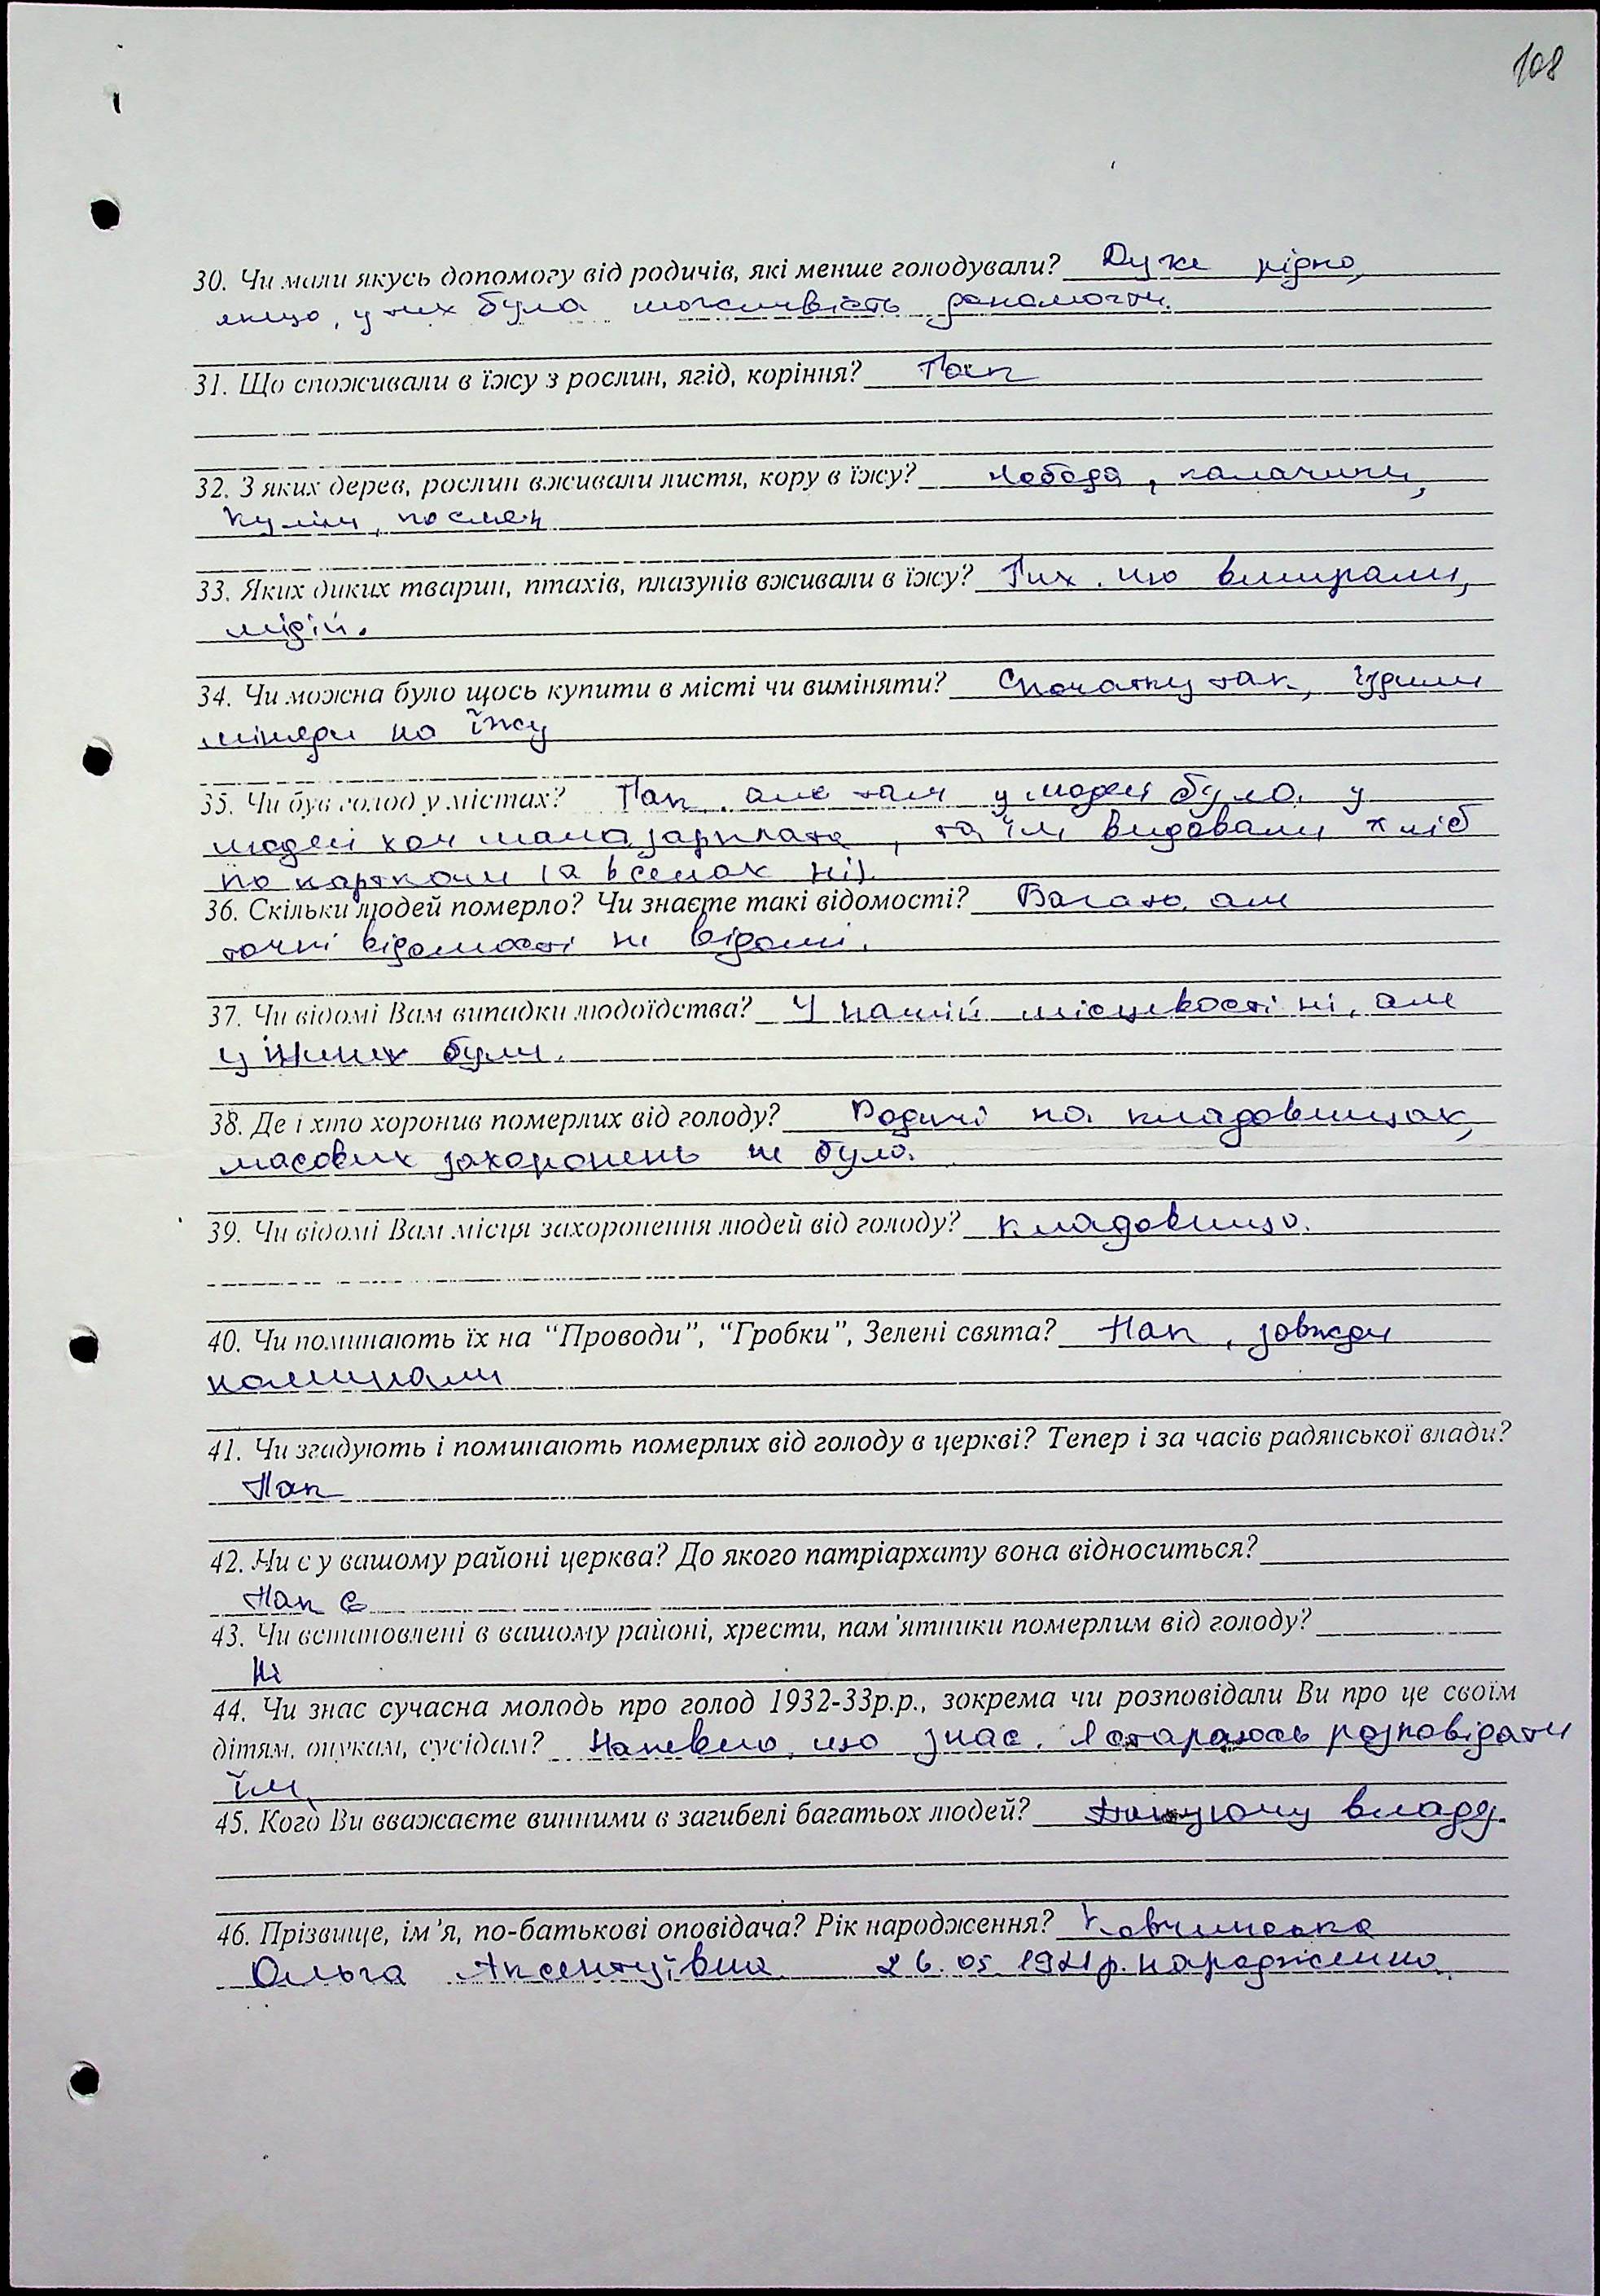 108
30. Чи мали якусь допомогу від родичів, які менше голодували? Дуже рідко,
якщо, у них була можливість допомогти.
31. Що споживали в їжу з рослин, ягід, коріння? Так
32. З яких дерев, рослин вживали листя, кору в їжу? Лобода, калачики,
курінь, паслен
33. Яких диких тварин, птахів, плазунів вживали в їжу? Тих, що вмирали,
мідій.
34. Чи можна було щось купити в місті чи виміняти? Спочатку так, їздили
міняли на їжу
35. Чи був голод у містах? Так, але там у людей було у
людей хоч мала зарплата, та їм видавали хліб
по карткам (а в селах ні).
36. Скільки людей померло? Чи знаєте такі відомості? Багато, але
точні відомості не відомі.
37. Чи відомі Вам випадки людоїдства? У нашій місцевості ні, але
у інших були.
38. Де і хто хоронив померлих від голоду? Родичі на кладовищах,
масових захоронень не було.
39. Чи відомі Вам місця захоронення людей від голоду? кладовища.
40. Чи поминають їх на “Проводи”, “Гробки”, Зелені свята? Так, завжди
поминали
41. Чи згадують і поминають померлих від голоду в церкві? Тепер і за часів радянської влади?
Так
42. Чи є у вашому районі церква? До якого патріархату вона відноситься?
Так є
43. Чи встановлені в вашому районі, хрести, пам’ятники померлим від голоду?
Ні
44. Чи знає сучасна молодь про голод 1932-33р.р., зокрема чи розповідали Ви про це своїм
дітям, онукам, сусідам? Напевно, що знає. Я стараюсь розповідати
їм.
45. Кого Ви вважаєте винними в загибелі багатьох людей? владу.
46. Прізвище, ім’я, по-батькові оповідача? Рік народження?
Ольга Аксентіївна 26.05 1921р. народження.